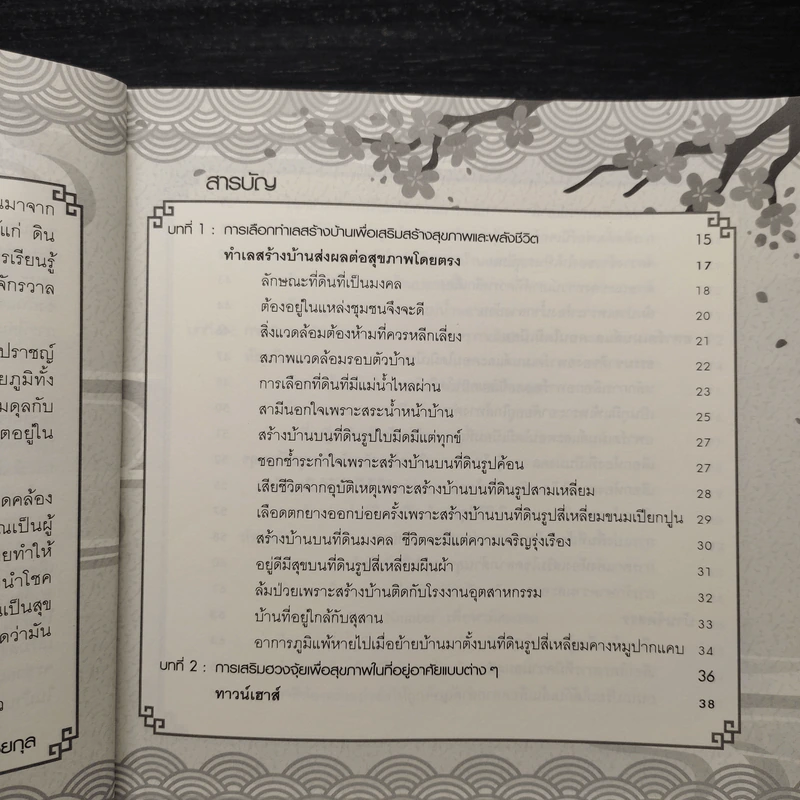 นมาจาก
แก่ ดิน
รเรียนรู้
จักรวาล
ปราชญ์
ยภูมิทั้ง
มดุลกับ
ตอยู่ใน
ดคล้อง
ณเป็นผู้
ยทำให้
นำโชค
นเป็นสุข
ดว่ามัน
ยกุล
สารบัญ
บทที่ 1 : การเลือกทำเลสร้างบ้านเพื่อเสริมสร้างสุขภาพและพลังชีวิต 15
ทำเลสร้างบ้านส่งผลต่อสุขภาพโดยตรง 17
ลักษณะที่ดินที่เป็นมงคล 18
ต้องอยู่ในแหล่งชุมชนจึงจะดี 20
สิ่งแวดล้อมต้องห้ามที่ควรหลีกเลี่ยง 21
สภาพแวดล้อมรอบตัวบ้าน 22
การเลือกที่ดินที่มีแม่น้ำไหลผ่าน 23
สามีนอกใจเพราะสระน้ำหน้าบ้าน 25
สร้างบ้านบนที่ดินรูปใบมีดมีแต่ทุกข์ 27
ชอกช้ำระกำใจเพราะสร้างบ้านบนที่ดินรูปค้อน 27
เสียชีวิตจากอุบัติเหตุเพราะสร้างบ้านบนที่ดินรูปสามเหลี่ยม 28
เลือดตกยางออกบ่อยครั้งเพราะสร้างบ้านบนที่ดินรูปสี่เหลี่ยมขนมเปียกปูน 29
สร้างบ้านบนที่ดินมงคล ชีวิตจะมีแต่ความเจริญรุ่งเรือง 30
อยู่ดีมีสุขบนที่ดินรูปสี่เหลี่ยมผืนผ้า 31
ล้มป่วยเพราะสร้างบ้านติดกับโรงงานอุตสาหกรรม 32
บ้านที่อยู่ใกล้กับสุสาน 33
อาการภูมิแพ้หายไปเมื่อย้ายบ้านมาตั้งบนที่ดินรูปสี่เหลี่ยมคางหมูปากแคบ 34
บทที่ 2 : การเสริมฮวงจุ้ยเพื่อสุขภาพในที่อยู่อาศัยแบบต่าง ๆ 36
ทาวน์เฮาส์ 38